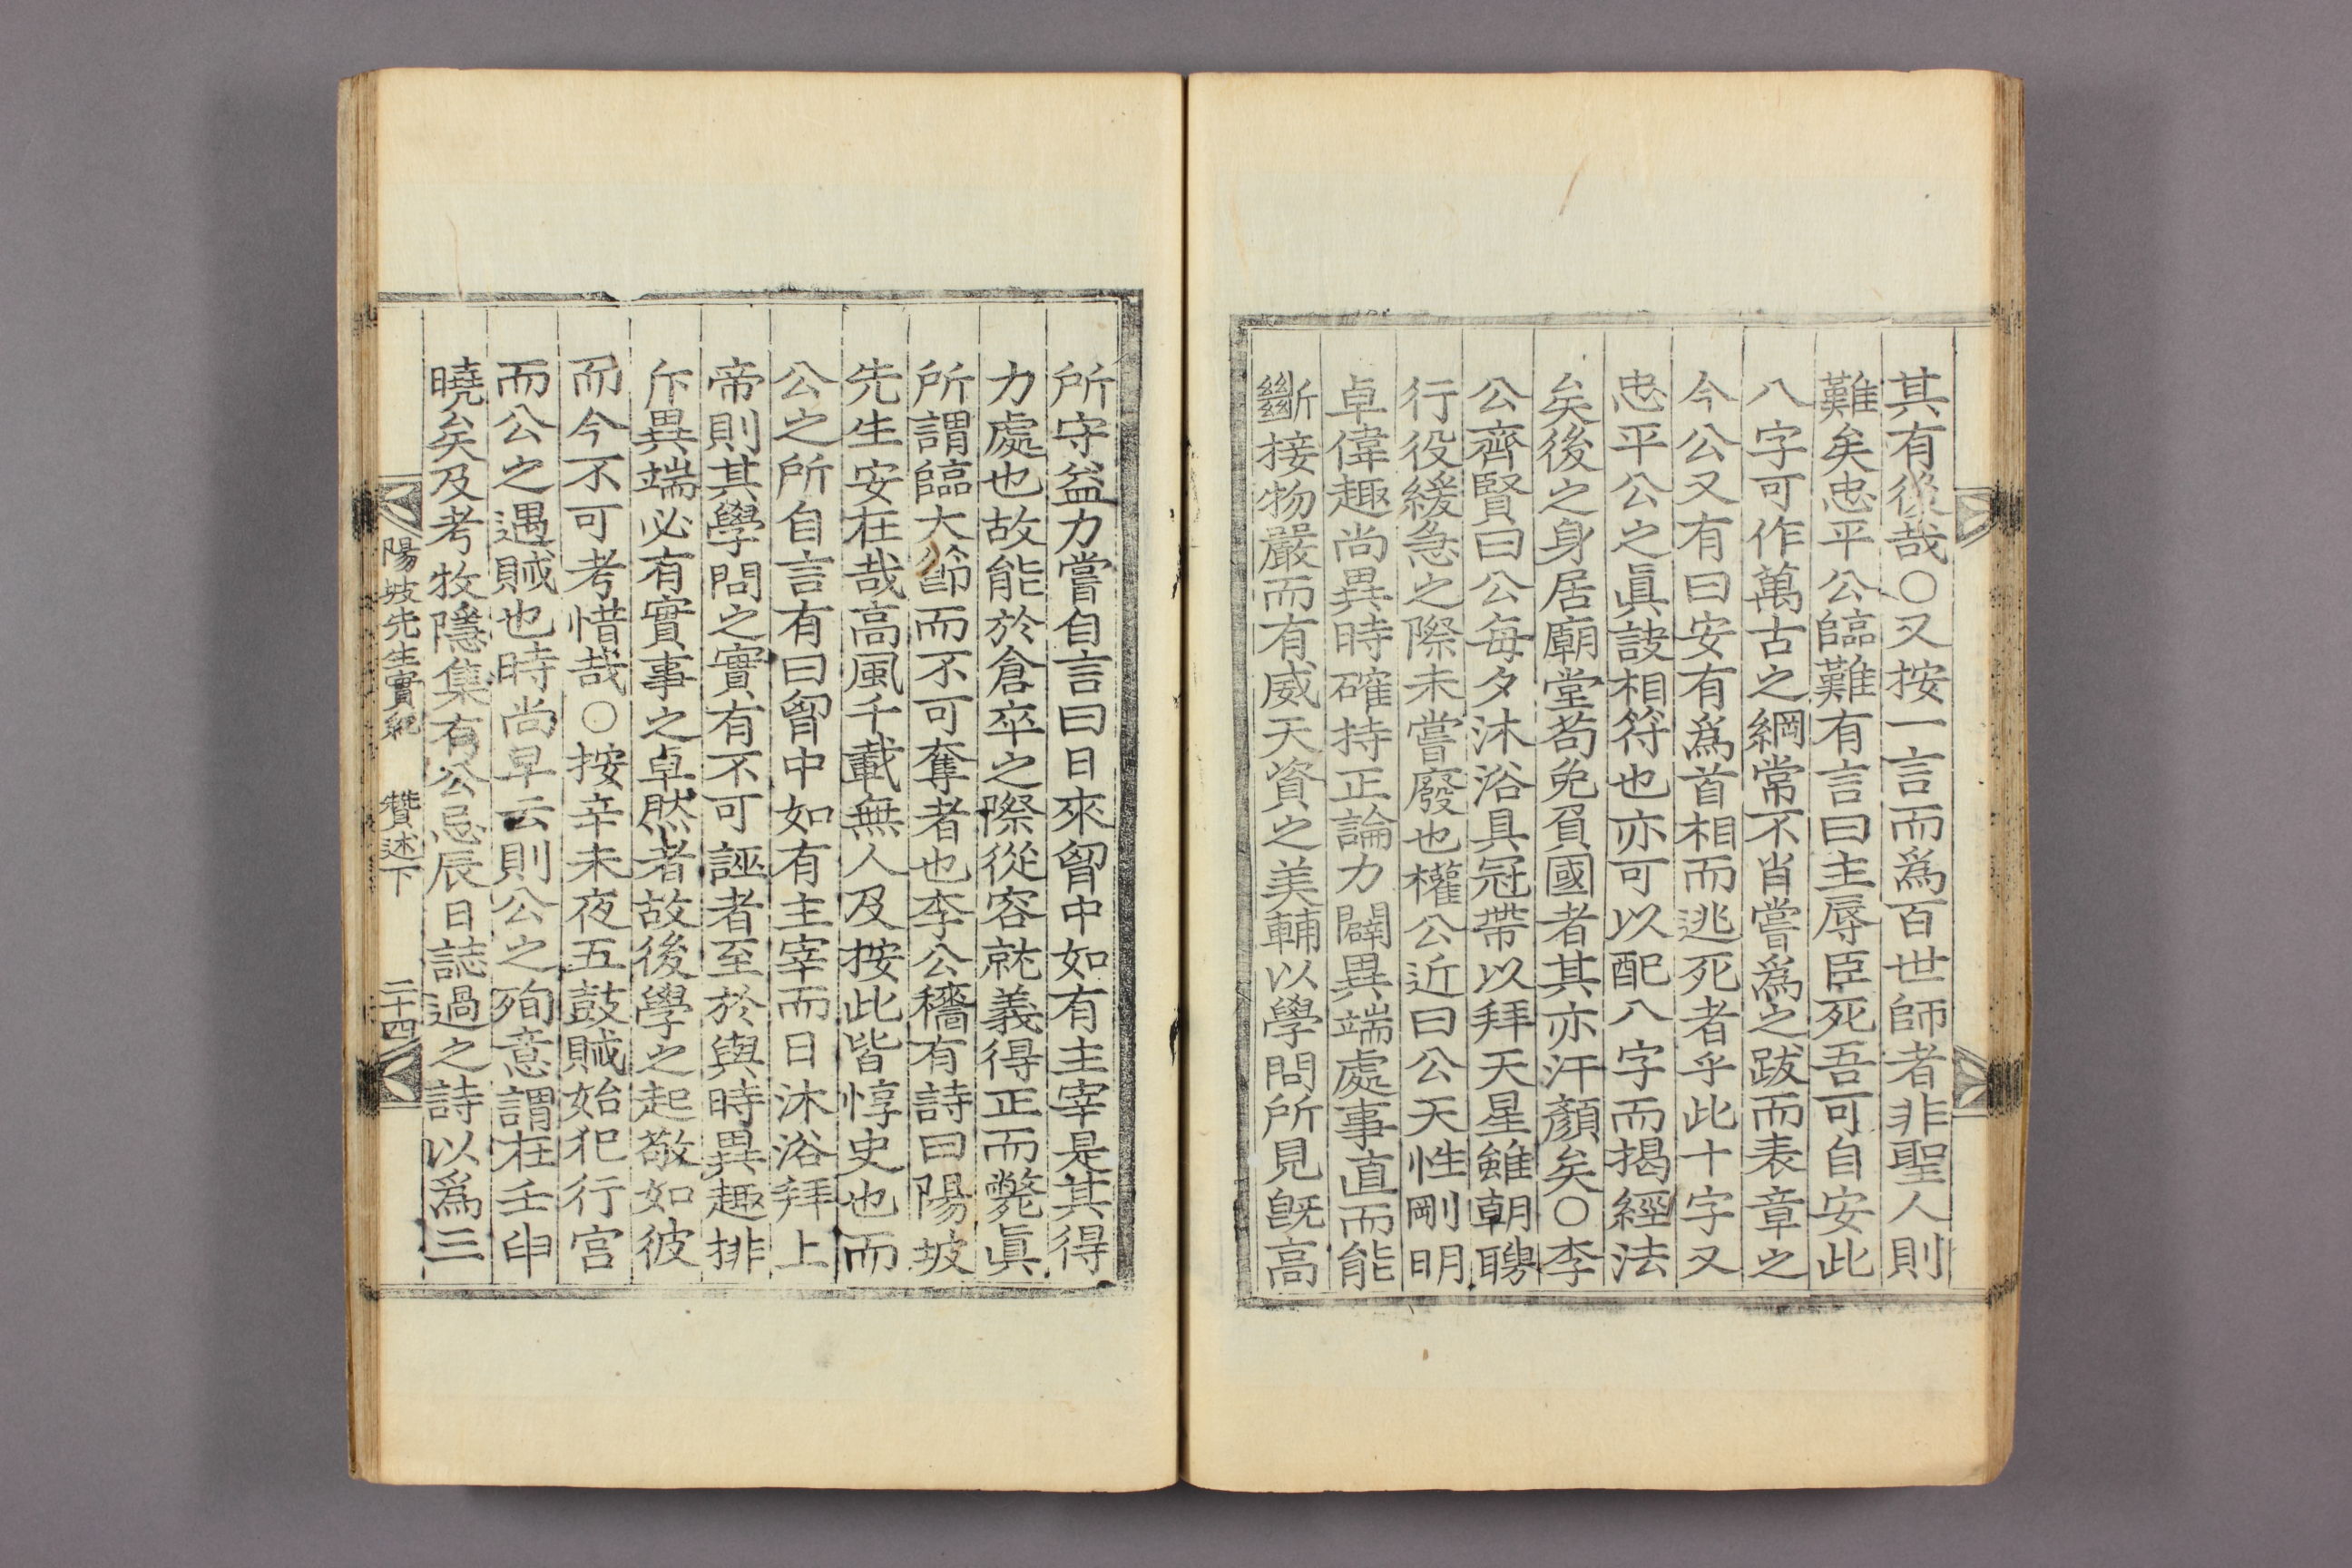 其有後哉○又按一言而爲百世師者非聖人則
難矣忠平公臨難有言曰主辱臣死吾可自安此
八字可作萬古之綱常不肖嘗爲之跋而表章之
今公又有曰安有爲首相而逃死者乎此十字又
忠平公之眞訣相符也亦可以配八字而揭經法
矣後之身居廟堂苟免負國者其亦汗顏矣○李
公齊賢曰公每夕沐浴具冠帶以拜天星雖朝聘
行役緩急之際未嘗廢也權公近曰公天性剛明
卓偉趣尚異時確持正論力闢異端處事直而能
斷接物嚴而有威天資之美輔以學問所見旣高
所守益力嘗自言曰日來胷中如有主宰是其得
力處也故能於倉卒之際從容就義得正而斃眞
所謂臨大節而不可奪者也李公穡有詩曰陽坡
先生安在哉高風千載無人及按此皆惇史也而
公之所自言有曰胷中如有主宰而日沐浴拜上
帝則其學問之實有不可誣者至於與時異趣排
斥異端必有實事之卓然者故後學之起敬如彼
而今不可考惜哉○按辛未夜五鼓賊始犯行宮
而公之遇賊也時尚早云則公之殉意謂在壬申
曉矣及考牧隱集有公忌辰日誌過之詩以爲三
陽坡先生實紀 贊述下 二十四